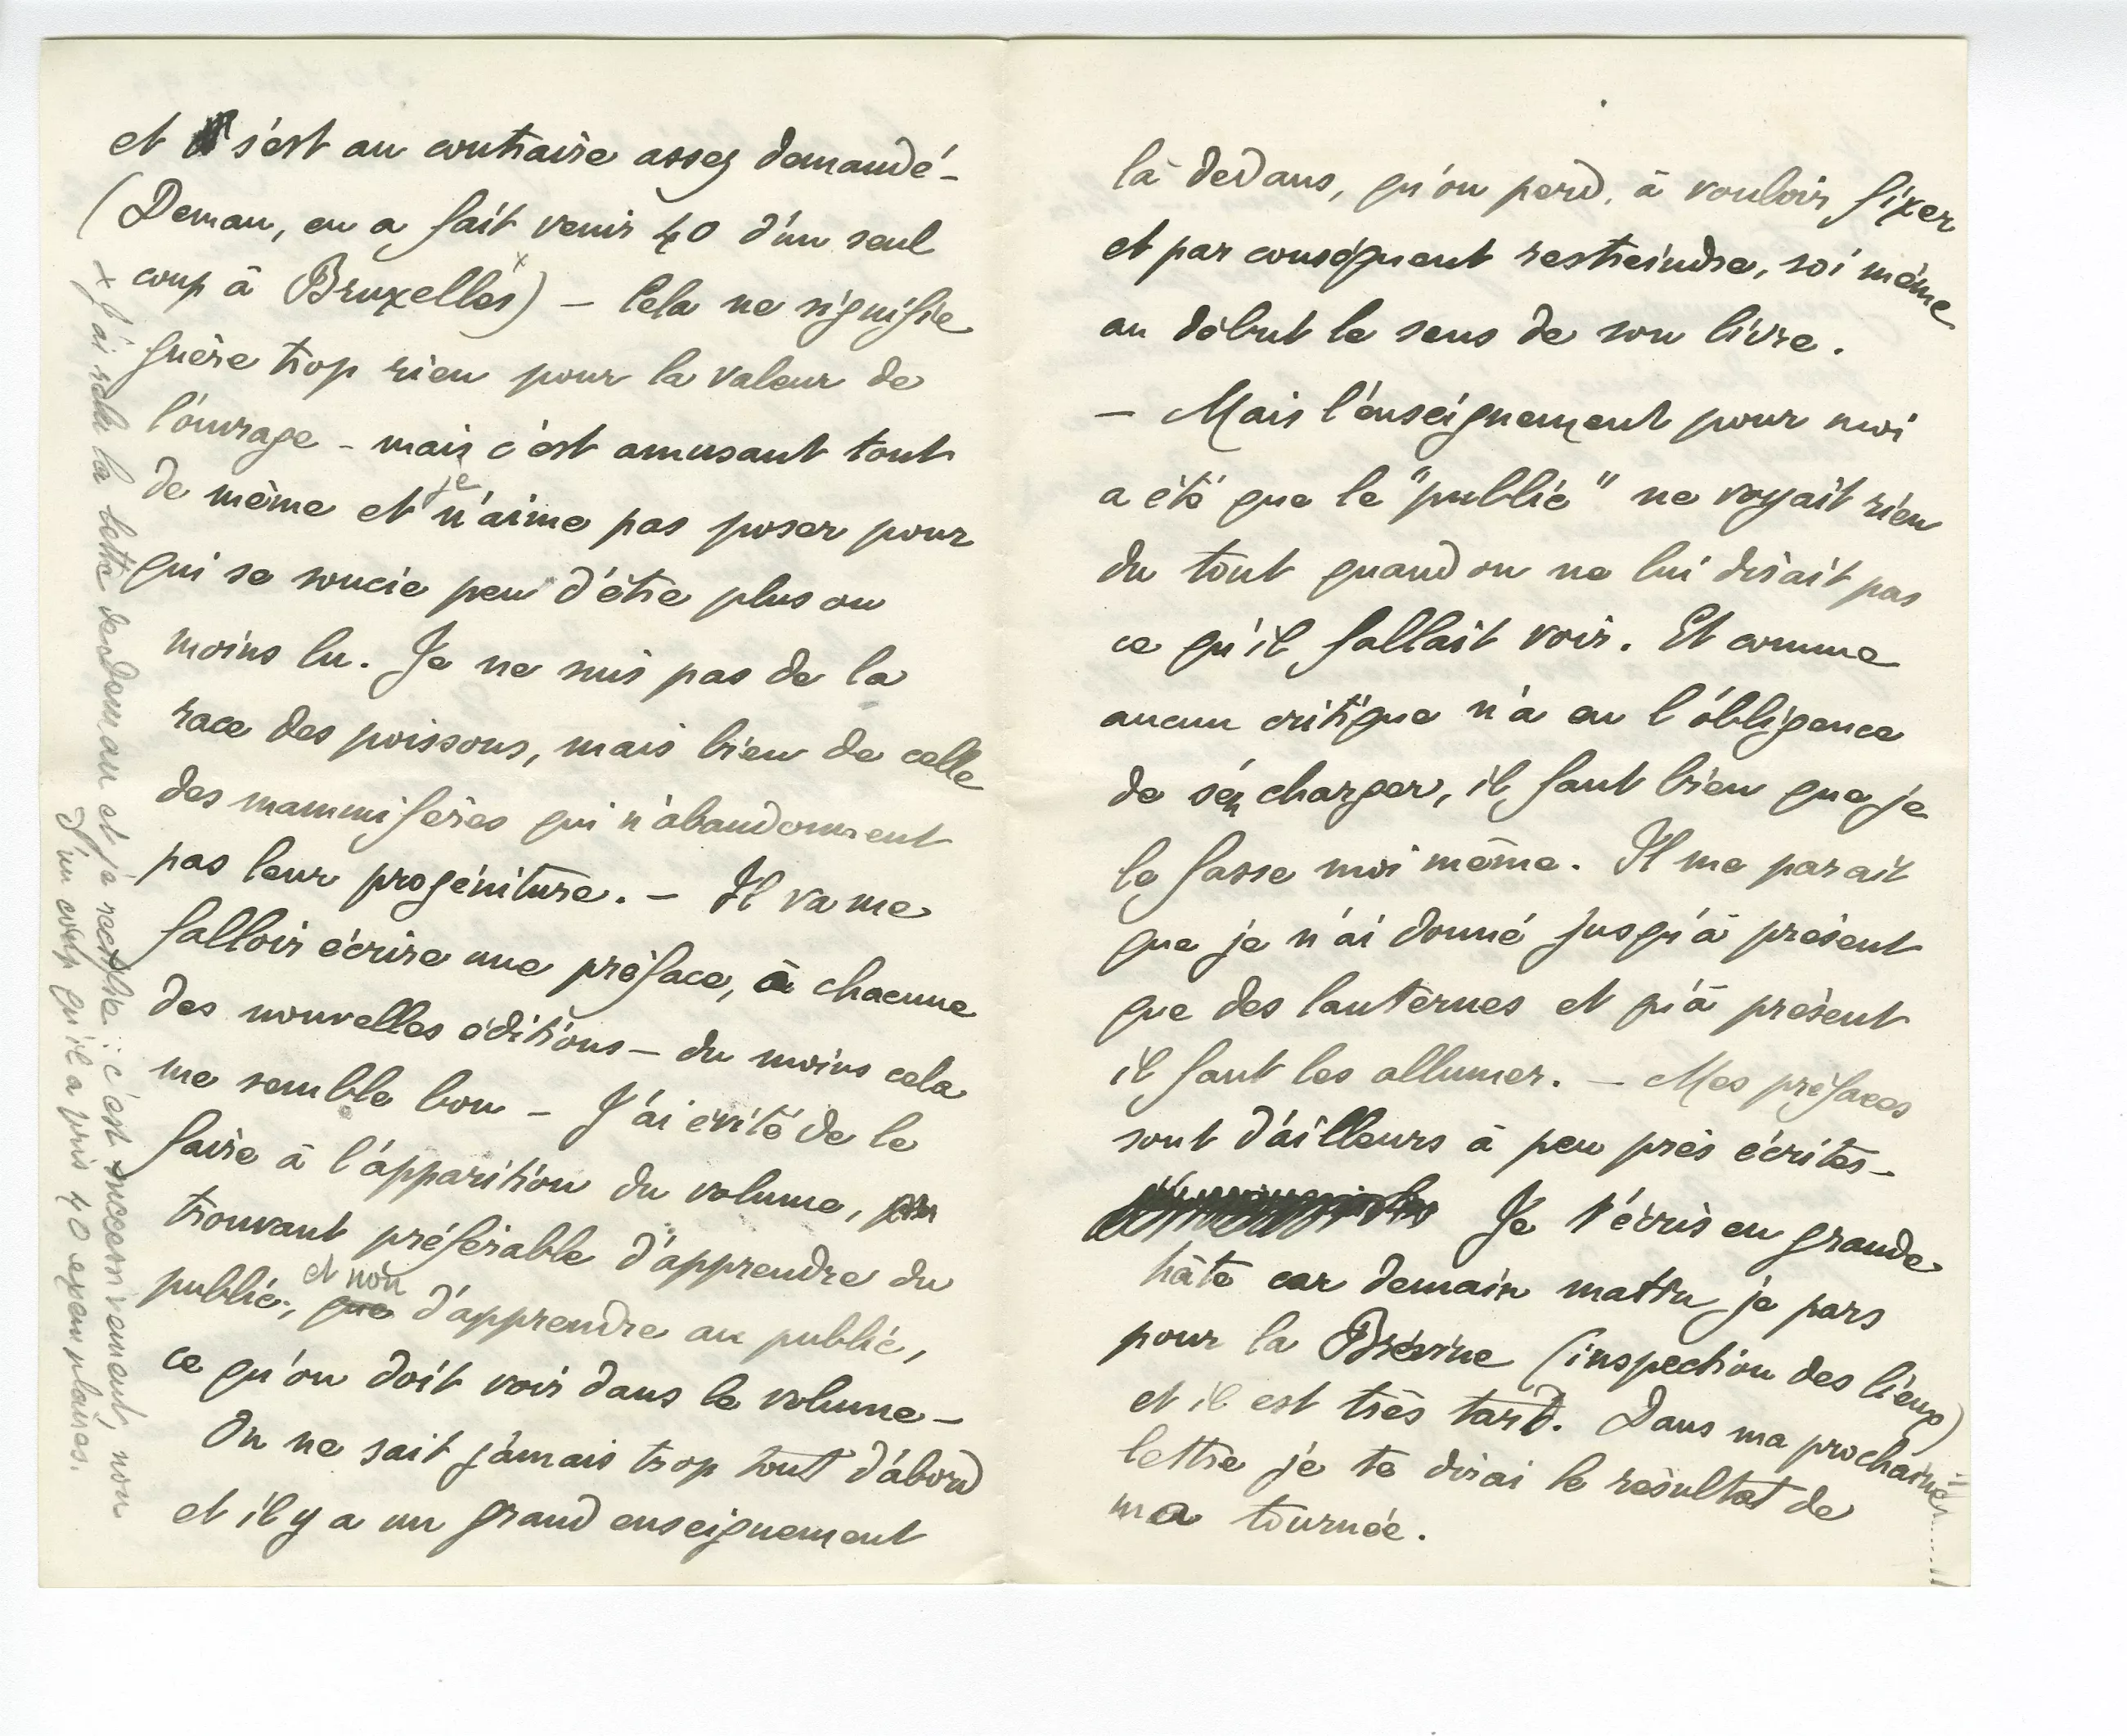 et s'est au contraire assez demandé -
(Deman, en a fait venir 40 d'un seul
coup à Bruxelles x) - Cela ne signifie
guère trop rien pour la valeur de
l'ouvrage - mais c'est amusant tout
de même et je n'aime pas poser pour
qui se soucie peu d'être plus ou
moins lu. Je ne suis pas de la
race des poissons, mais bien de celle
des mammifères qui n'abandonnent
pas leur progéniture. - Il va me
falloir écrire une préface, à chacune
des nouvelles éditions - du moins cela
me semble bon - J'ai évité de le
faire à l'apparition du volume,
trouvant préférable d'apprendre du
public, que et non d'apprendre au public,
ce qu'on doit voir dans le volume -
On ne sait jamais trop tout d'abord
et il y a un grand enseignement
x J'ai relu la lettre de Deman et je rectifie : c'est successivement, non
d'un coup qu'il a pris 40 exemplaires.
là dedans, qu'on perd, à vouloir fixer
et par conséquent restreindre, soi même
au début le sens de son livre.
- Mais l'enseignement pour moi
a été que le "public" ne voyait rien
du tout quand on ne lui disait pas
ce qu'il fallait voir. Et comme
aucun critique n'a eu l'obligence
de s'en charger, il faut bien que je
le fasse moi même. Il me parait
que je n'ai donné jusqu'à présent
que des lanternes et qu'à présent
il faut les allumer. - Mes préfaces
sont d'ailleurs à peu près écrites -
Je t'écris en grande
hâte car demain matin je pars
pour la Brévine (inspection des lieux)
et il est très tard. Dans ma prochaine......!!
lettre je te dirai le résultat de
ma tournée.